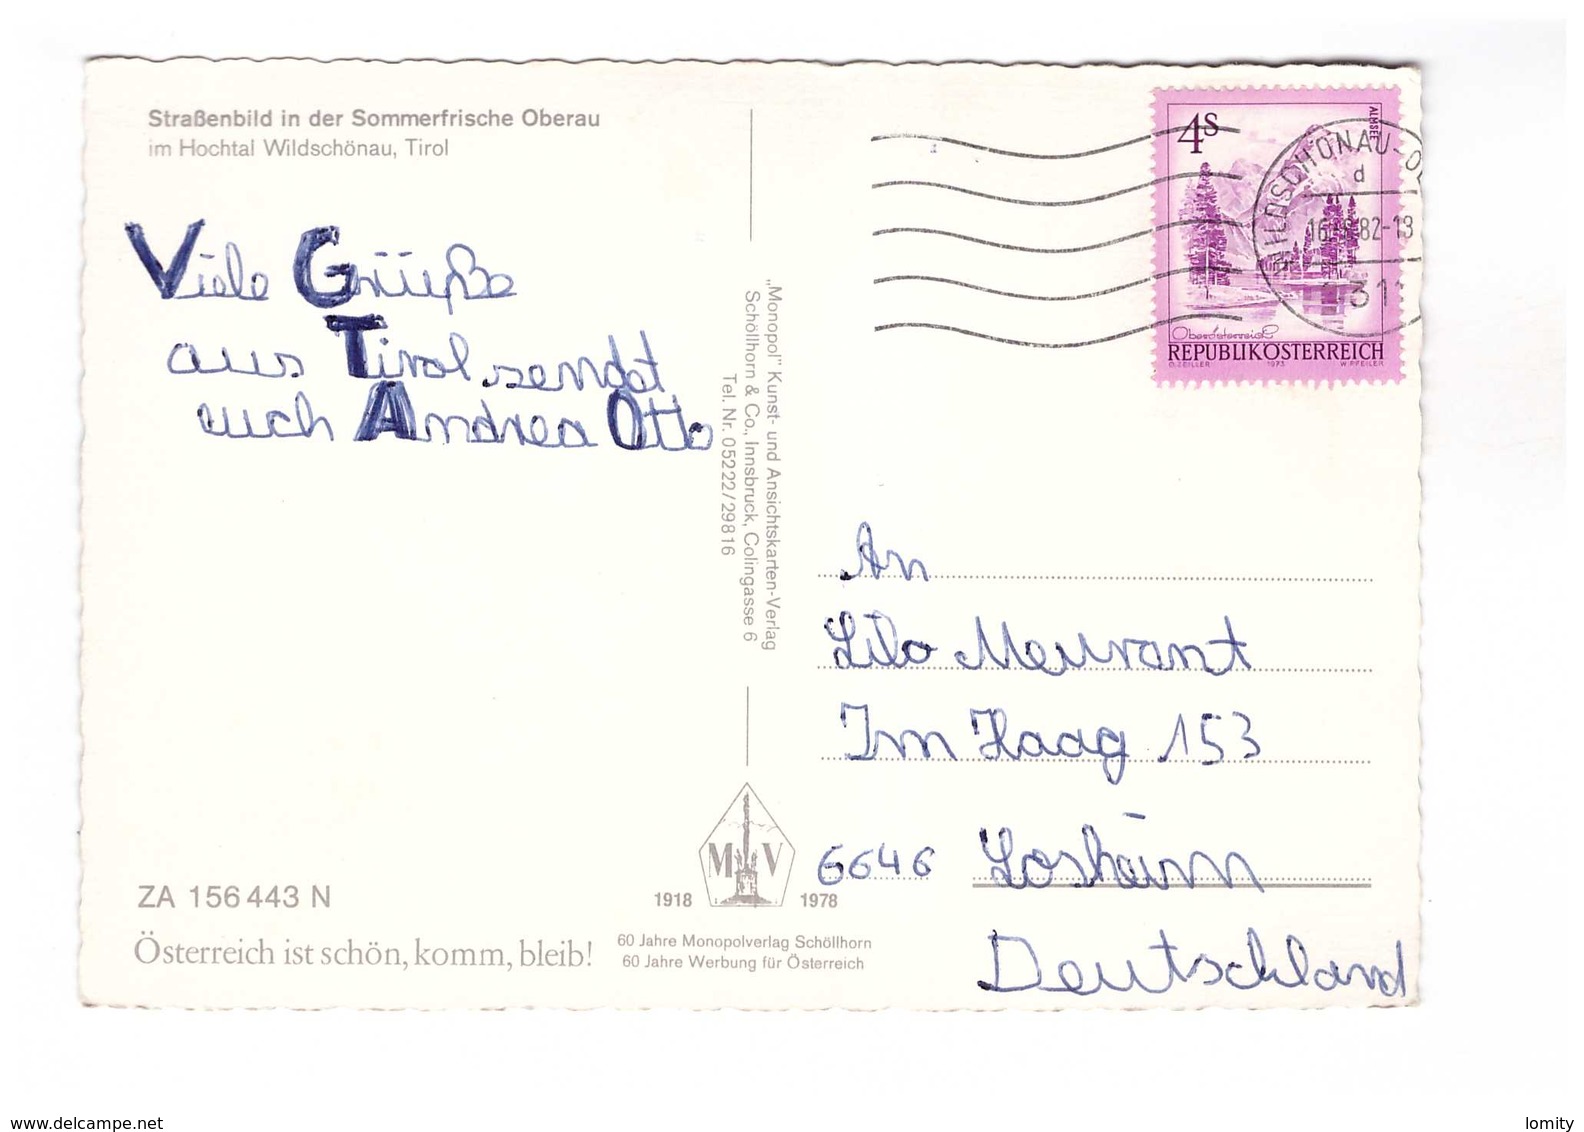 Straßenbild in der Sommerfrische Oberau
im Hochtal Wildschönau, Tirol
Viele Grüße
aus Tirol sendet
euch Andrea Otto
ZA 156 443 N
Österreich ist schön, komm, bleib!
„Monopol" Kunst- und Ansichtskarten-Verlag
Schöllhorn & Co., Innsbruck, Colingasse 6
Tel. Nr. 05222/29816
M V
1918 1978
60 Jahre Monopolverlag Schöllhorn
60 Jahre Werbung für Österreich
4S
ALMSEE
Oberösterreich
REPUBLIK ÖSTERREICH
O. ZEILLER 1973 W. PFEILER
WILDSCHÖNAU-
d
82-13
An
Lilo Meurant
Im Haag 153
6646 Losheim
Deutschland
www.delcampe.net
lomity